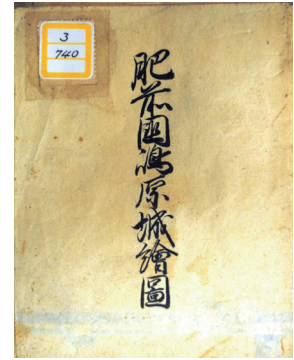 3
740
肥前國嶋原城繪圖